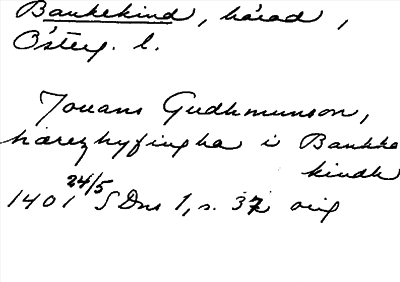 Bankekind, härad,
Österg. l.
Jouans Gudhmunson,
hærezhyfingha i Bankke
kindh
1401 24/5 SDns 1, s. 37 orig